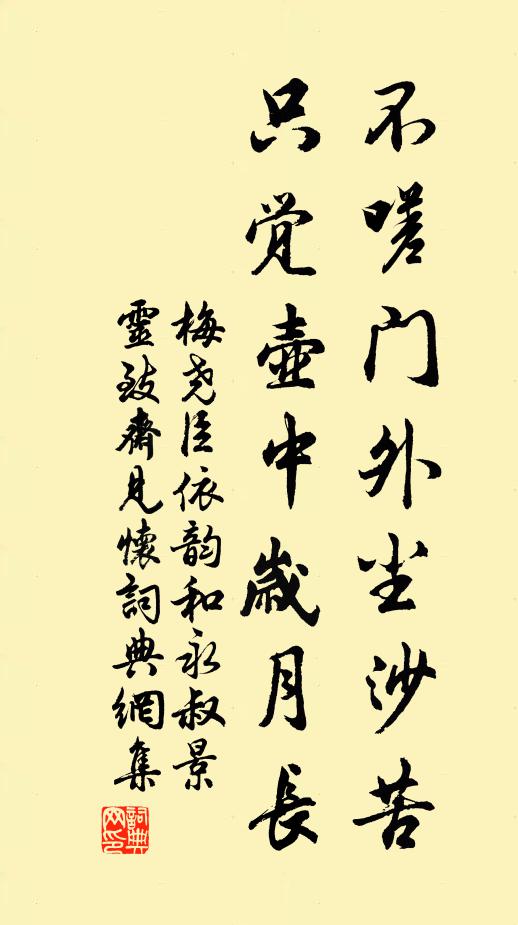 不嗟门外尘沙苦
只觉壶中歲月長
梅尧臣依韵和永叔景
靈致齋見懷詞典網集
詞典
网印